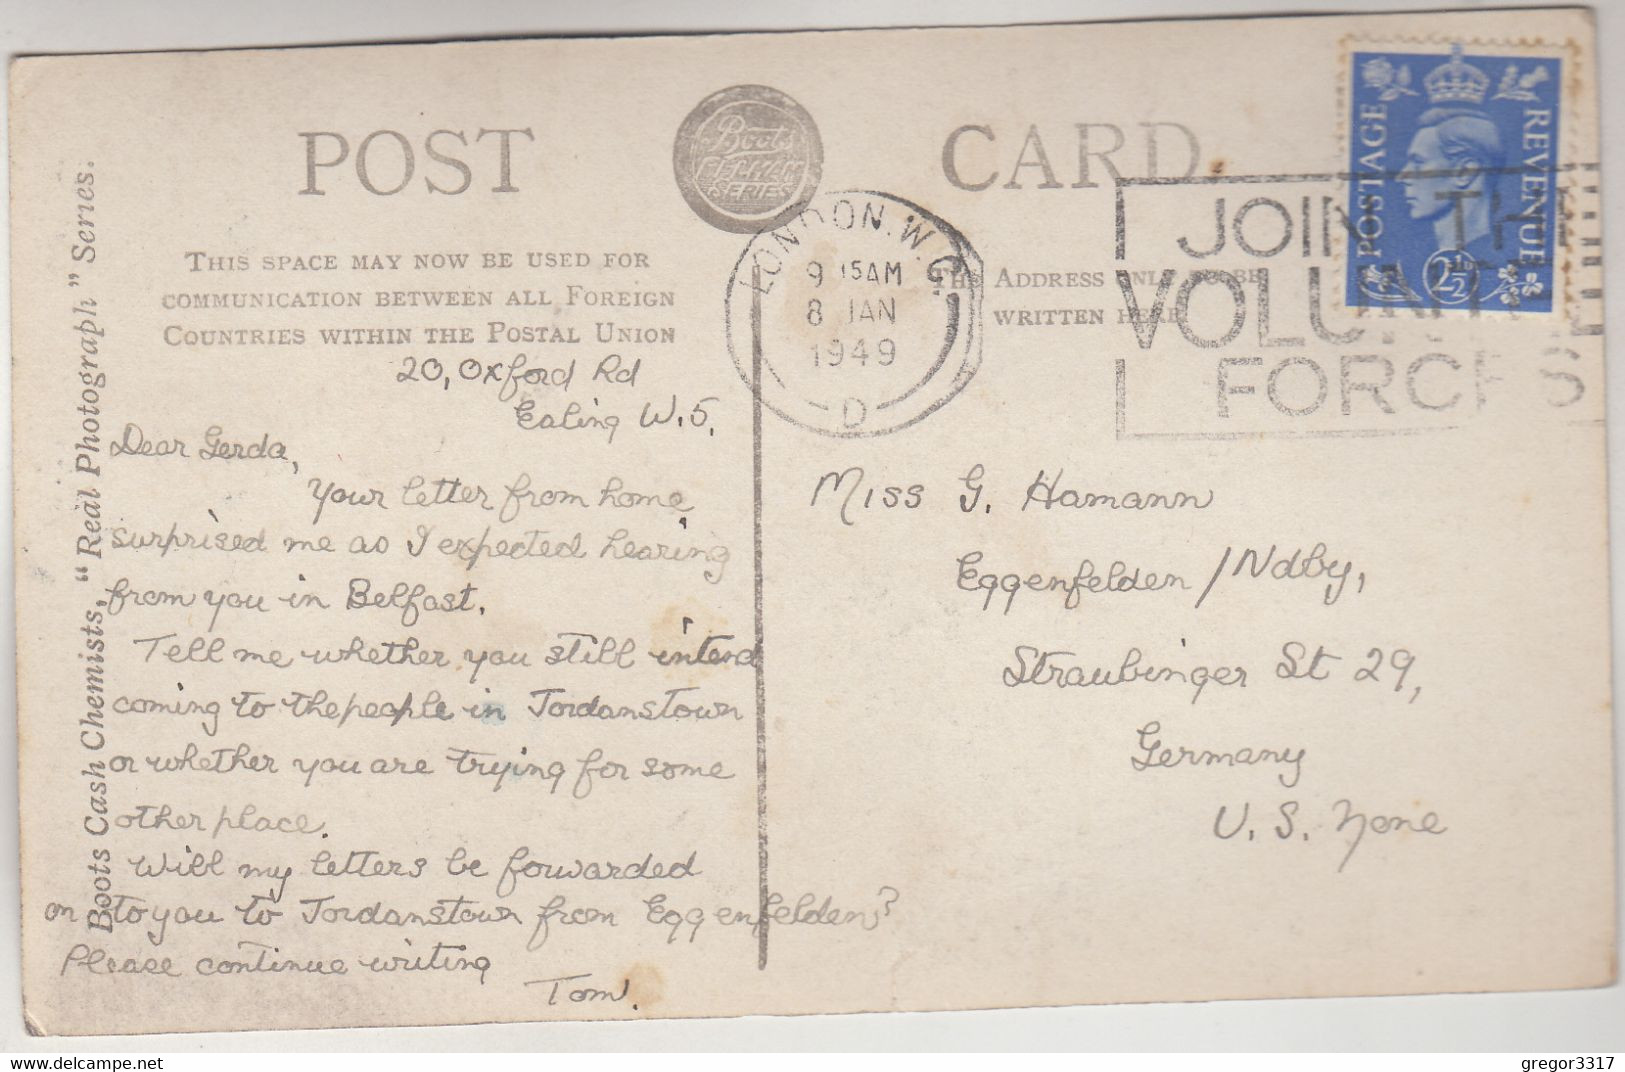 POST CARD
Boots
SERIES
THIS SPACE MAY NOW BE USED FOR
COMMUNICATION BETWEEN ALL FOREIGN
COUNTRIES WITHIN THE POSTAL UNION
THE ADDRESS ONLY TO BE
WRITTEN HERE
LONDON. W.C.
9 15AM
8 JAN
1949
D
JOIN THE
VOLUNTEER
FORCES
POSTAGE
REVENUE
2½D
20, Oxford Rd
Ealing W.5.
Dear Gerda,
Your letter from home
surprised me as I expected hearing
from you in Belfast.
Tell me whether you still intend
coming to the people in Jordanstown
or whether you are trying for some
other place.
Will my letters be forwarded
on to you to Jordanstown from Eggenfelden?
Please continue writing
Tom.
Miss G. Hamann
Eggenfelden / Ndby,
Straubinger St 29,
Germany
U. S. Zone
Boots Cash Chemists, "Real Photograph" Series.
gregor3317